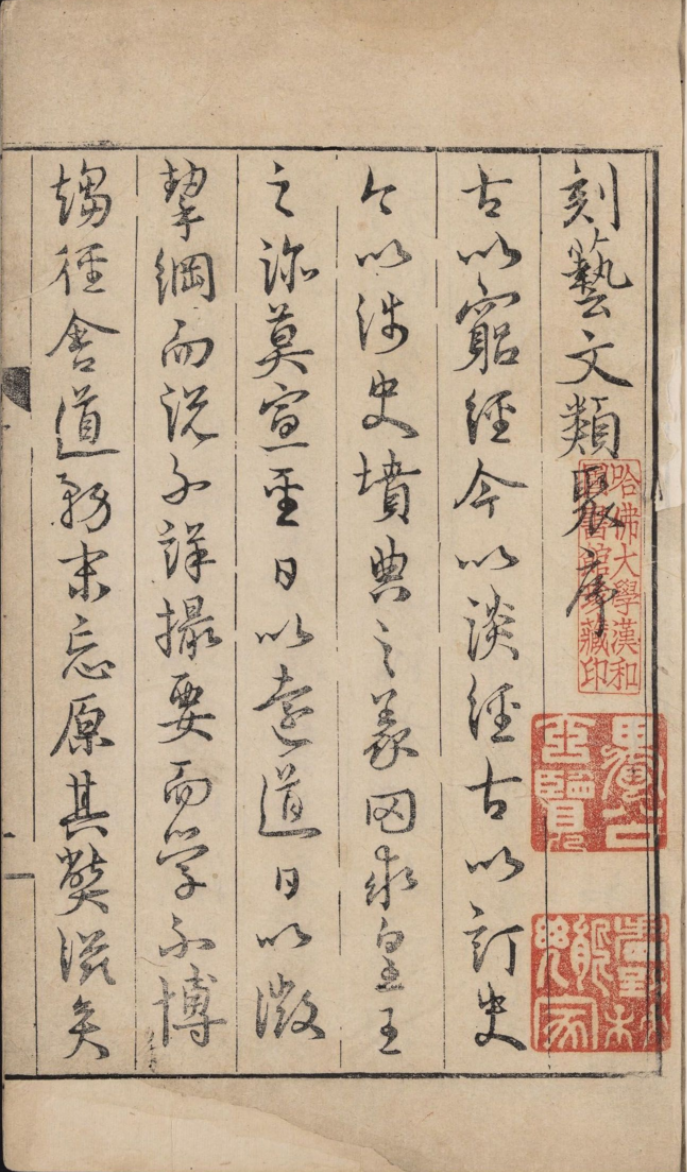 刻藝文類聚序
古以窮經今以談經古以訂史
今以涉史墳典之義罔求皇王
之跡莫宣聖日以遠道日以微
挈綱而說不詳撮要而學不博
趨徑舍道務末忘原其獘滋矣
哈佛大學漢和
圖書館珍藏印